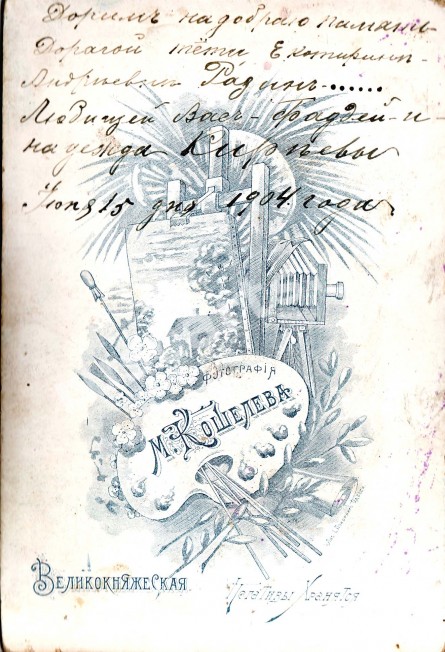 Доримъ на добраю память
Дорагой тёти Екотирине
Андреевне Радин......
Любищей Васъ Фаддей и
надежда Кирѣевы
Июня 15 дня 1904 года
ФОТОГРАФІЯ
М. КОШЕЛЕВА.
ВЕЛИКОКНЯЖЕСКАЯ.
Негативы Хранятся